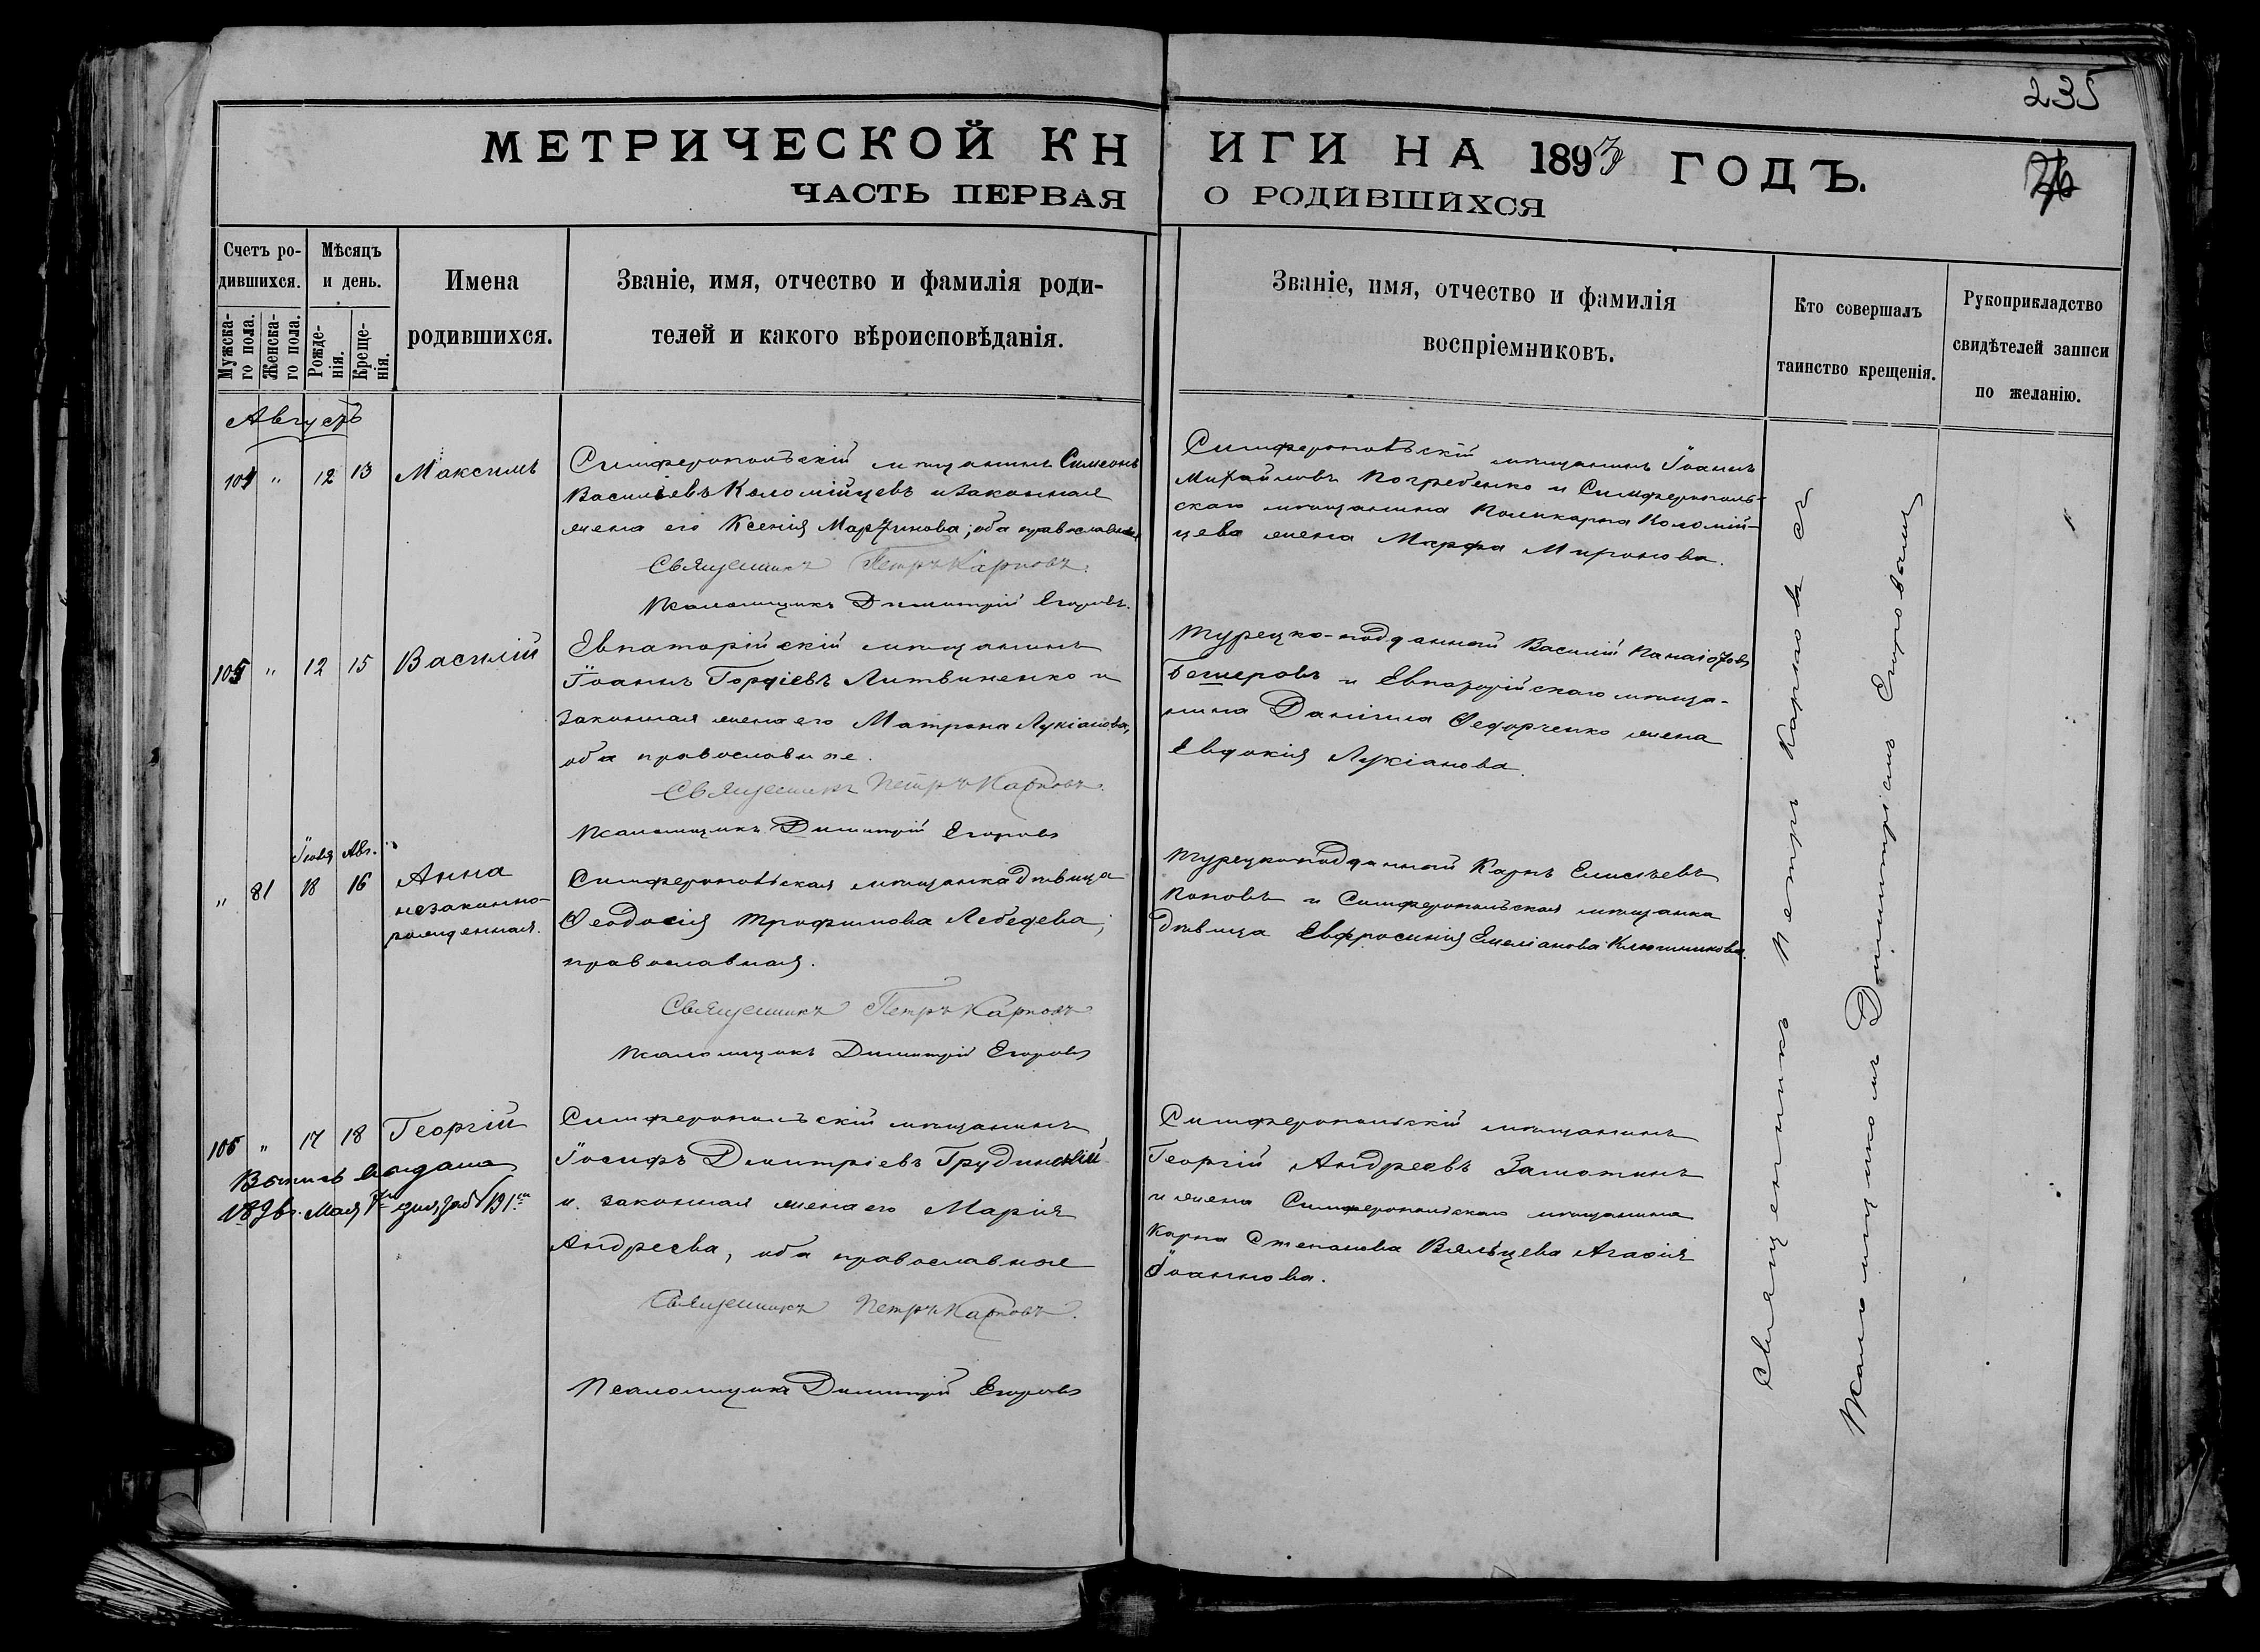 235
МЕТРИЧЕСКОЙ КНИГИ НА 1893 ГОДЪ.
ЧАСТЬ ПЕРВАЯ О РОДИВШИХСЯ
Счетъ ро-
дившихся.
Мужска-
го пола.
Женска-
го пола.
Мѣсяцъ
и день.
Рожде-
нія.
Креще-
нія.
Имена
родившихся.
Званіе, имя, отчество и фамилія роди-
телей и какого вѣроисповѣданія.
Званіе, имя, отчество и фамилія
воспріемниковъ.
Кто совершалъ
таинство крещенія.
Рукоприкладство
свидѣтелей записи
по желанію.
Августъ
104 " 12 13 Максимъ
Симферопольскій мѣщанинъ Симеонъ
Васильевъ Коломійцевъ и законная
жена его Ксенія Мартинова; оба православные
Священникъ Петръ Карповъ.
Псаломщикъ Димитрій Егоровъ.
Симферопольскій мѣщанинъ Іоаннъ
Михайловъ Погребенко и Симферополь-
скаго мѣщанина Поликарпа Коломій-
цева жена Марфа Миронова.
105 " 12 15 Василій
Евпаторійскій мѣщанинъ
Іоаннъ Гордіевъ Литвиненко и
законная жена его Матрона Лукіанова,
оба православные.
Священникъ Петръ Карповъ.
Псаломщикъ Димитрій Егоровъ
Турецко-подданный Василій Панаіотовъ
Бешеровъ и Евпаторійскаго мѣща-
нина Даніила Федорченко жена
Евдокія Лукіанова.
Іюля Авг.
" 81 18 16 Анна
незаконно-
рожденная.
Симферопольская мѣщанка дѣвица
Феодосія Трофимова Лебедева;
православная.
Священникъ Петръ Карповъ
Псаломщикъ Димитрій Егоровъ
Турецкоподданный Карпъ Елисѣевъ
Поповъ и Симферопольская мѣщанка
дѣвица Евфросинія Емеліанова Ключникова.
106 " 17 18 Георгій
Выпись выдана
1896г. Мая дня, за № 191
Симферопольскій мѣщанинъ
Іосифъ Дмитріевъ Грудинскій
и законная жена его Марія
Андреева, оба православные
Священникъ Петръ Карповъ.
Псаломщикъ Димитрій Егоровъ
Симферопольскій мѣщанинъ
Георгій Андреевъ Замотинъ
и жена Симферопольскаго мѣщанина
Карпа Степанова Вяльцева Агафія
Іоаннова.
Священникъ Петръ Карповъ съ
Псаломщикомъ Димитріемъ Егоровымъ